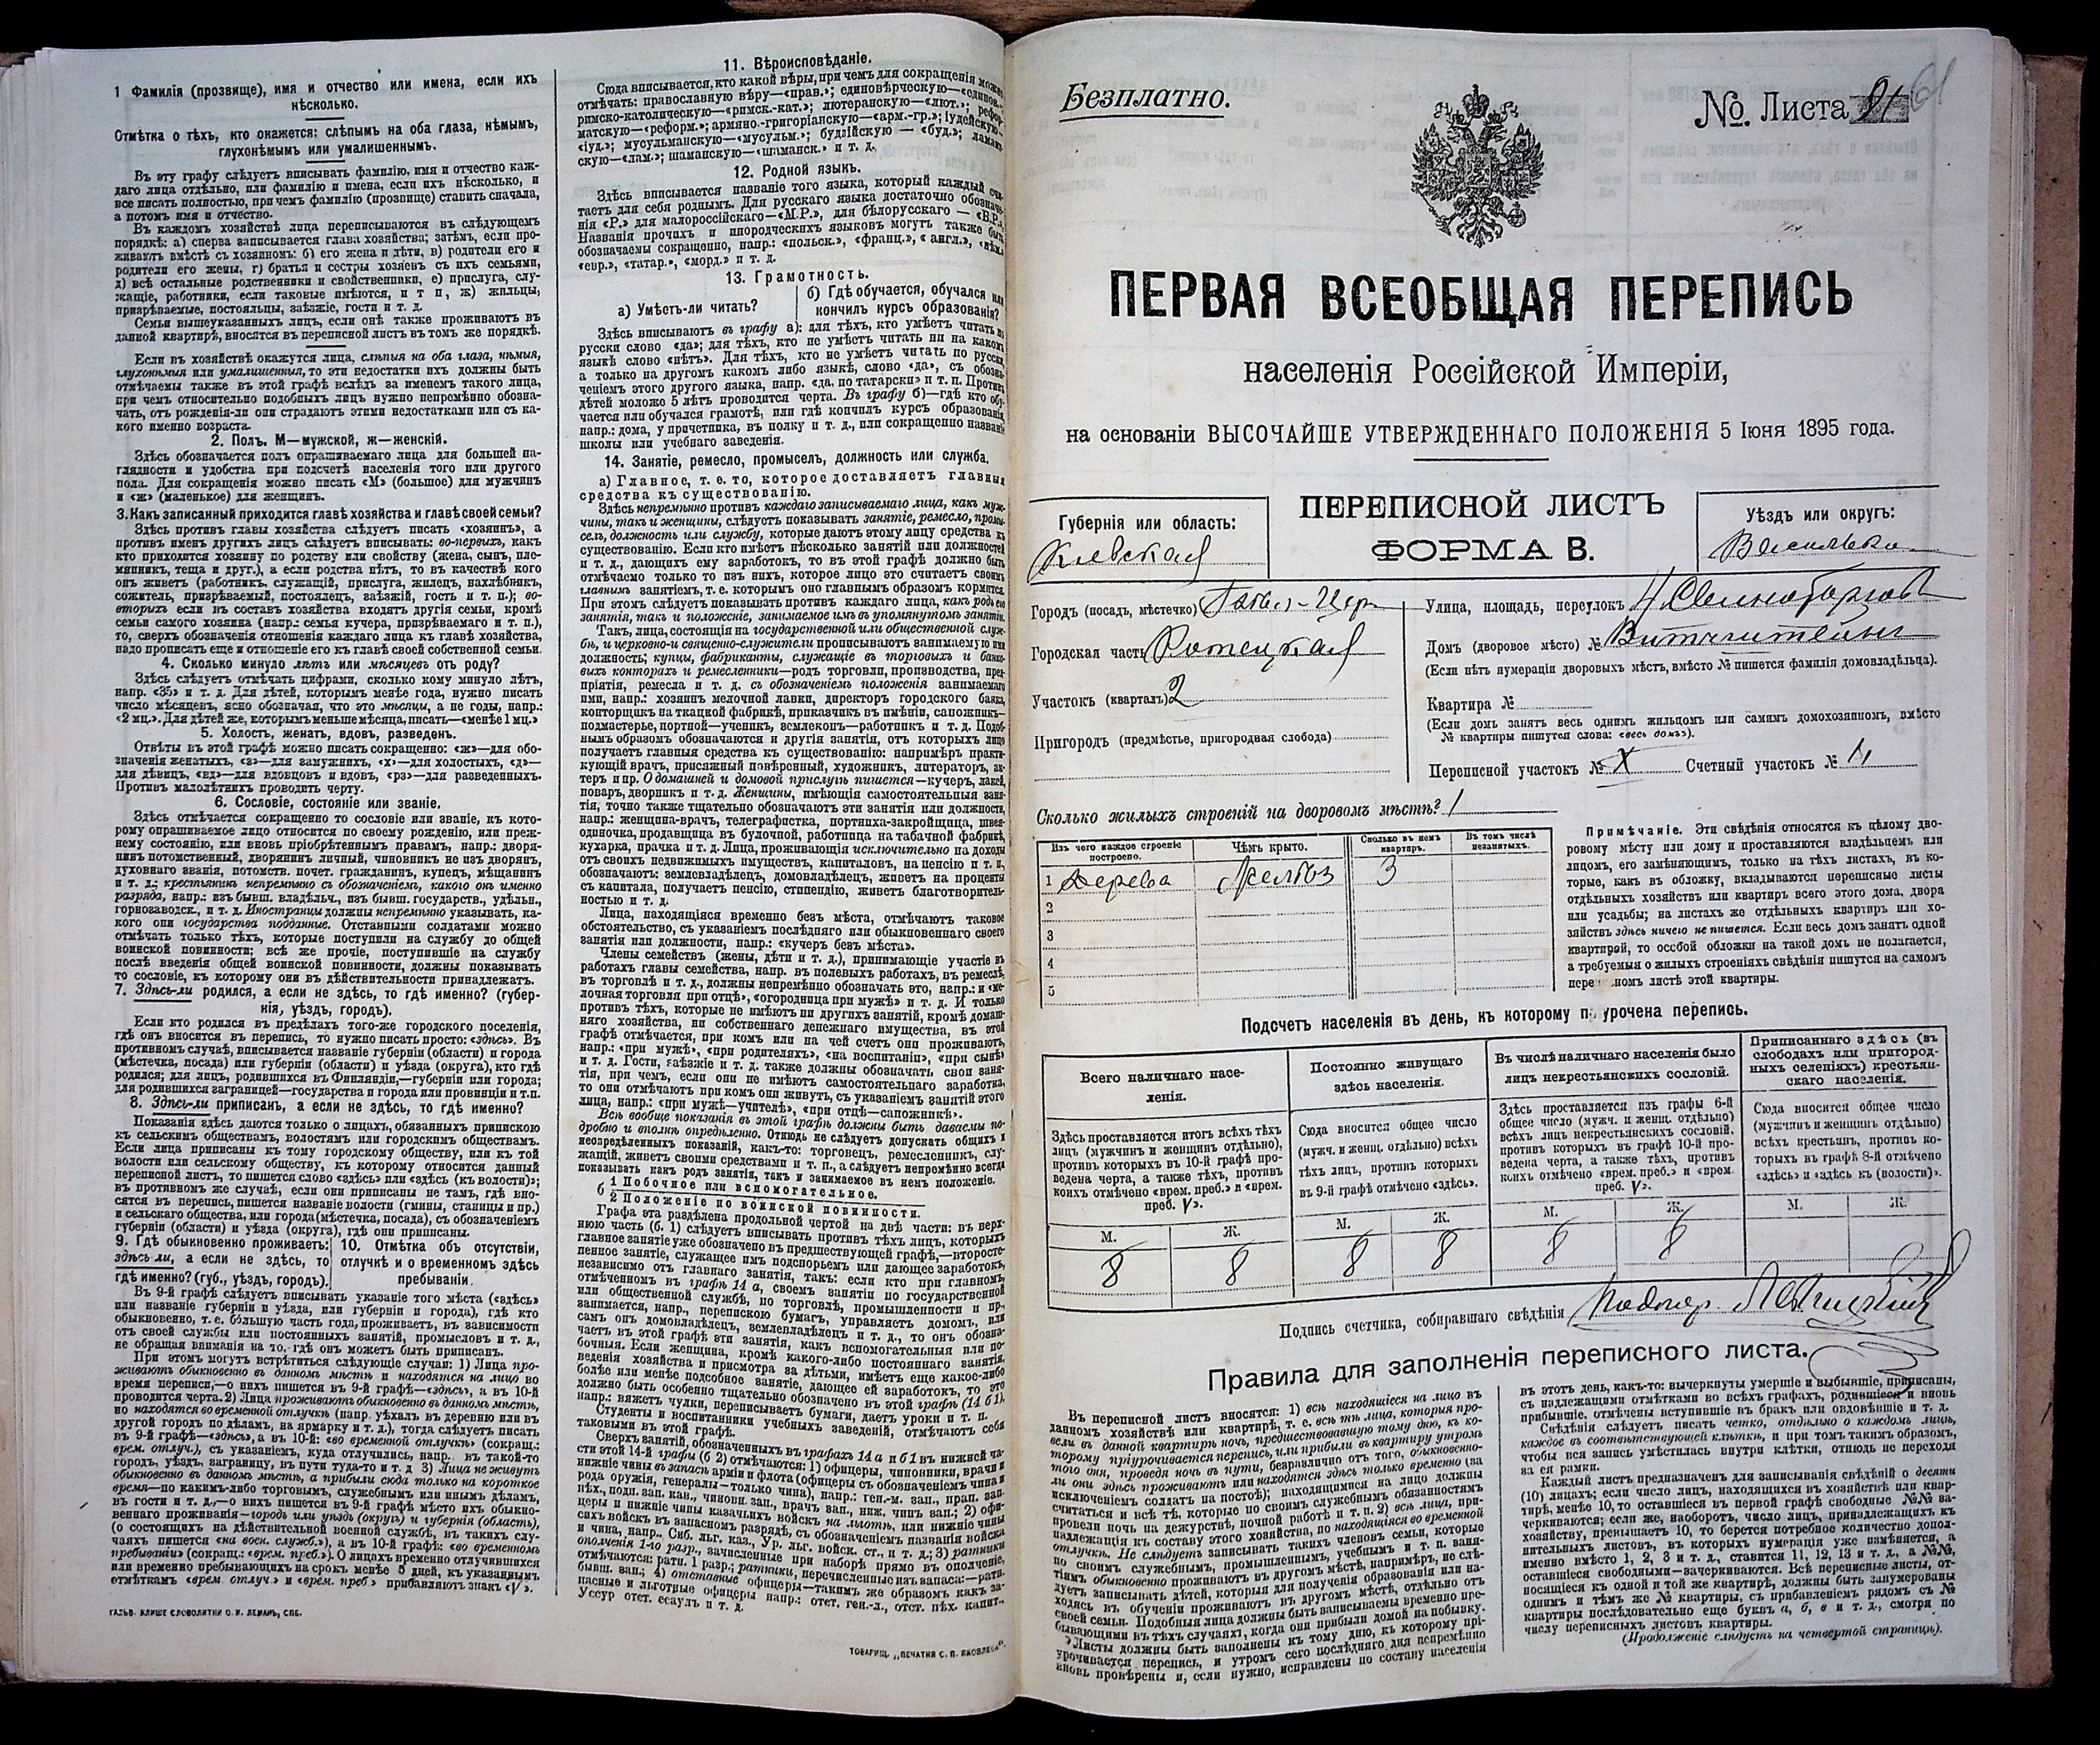 1 Фамилія (прозвище), имя и отчество или имена, если ихъ
нѣсколько.
Отмѣтка о тѣхъ, кто окажется: слѣпымъ на оба глаза, нѣмымъ,
глухонѣмымъ или умалишеннымъ.
Въ эту графу слѣдуетъ вписывать фамилію, имя и отчество каж-
даго лица отдѣльно, или фамилію и имена, если ихъ нѣсколько, и
все писать полностью, при чемъ фамилію (прозвище) ставить сначала,
а потомъ имя и отчество.
Въ каждомъ хозяйствѣ лица переписываются въ слѣдующемъ
порядкѣ: а) сперва записывается глава хозяйства; затѣмъ, если про-
живаютъ вмѣстѣ съ хозяиномъ: б) его жена и дѣти, в) родители его и
родители его жены, г) братья и сестры хозяевъ съ ихъ семьями,
д) всѣ остальные родственники и свойственники, е) прислуга, слу-
жащіе, работники, если таковые имѣются, и т п, ж) жильцы,
призрѣваемые, постояльцы, заѣзжіе, гости и т. д.
Семьи вышеуказанныхъ лицъ, если онѣ также проживаютъ въ
данной квартирѣ, вносятся въ переписной листъ въ томъ же порядкѣ.
Если въ хозяйствѣ окажутся лица, слѣпыя на оба глаза, нѣмыя,
глухонѣмыя или умалишенныя, то эти недостатки ихъ должны быть
отмѣчаемы также въ этой графѣ вслѣдъ за именемъ такого лица,
при чемъ относительно подобныхъ лицъ нужно непремѣнно обозна-
чать, отъ рожденія-ли они страдаютъ этими недостатками или съ ка-
кого именно возраста.
2. Полъ. М—мужской, ж—женскій.
Здѣсь обозначается полъ опрашиваемаго лица для большей на-
глядности и удобства при подсчетѣ населенія того или другого
пола. Для сокращенія можно писать «М» (большое) для мужчинъ
и «ж» (маленькое) для женщинъ.
3. Какъ записанный приходится главѣ хозяйства и главѣ своей семьи?
Здѣсь противъ главы хозяйства слѣдуетъ писать «хозяинъ», а
противъ именъ другихъ лицъ слѣдуетъ вписывать: во-первыхъ, какъ
кто приходится хозяину по родству или свойству (жена, сынъ, пле-
мянникъ, теща и друг.), а если родства нѣтъ, то въ качествѣ кого
онъ живетъ (работникъ, служащій, прислуга, жилецъ, нахлѣбникъ,
сожитель, призрѣваемый, постоялецъ, заѣзжій, гость и т. п.); во-
вторыхъ если въ составъ хозяйства входятъ другія семьи, кромѣ
семьи самого хозяина (напр.: семья кучера, призрѣваемаго и т. п.),
то, сверхъ обозначенія отношенія каждаго лица къ главѣ хозяйства,
надо прописать еще и отношеніе его къ главѣ своей собственной семьи.
4. Сколько минуло лѣтъ или мѣсяцевъ отъ роду?
Здѣсь слѣдуетъ отмѣчать цифрами, сколько кому минуло лѣтъ,
напр. «35» и т. д. Для дѣтей, которымъ менѣе года, нужно писать
число мѣсяцевъ, ясно обозначая, что это мѣсяцы, а не годы, напр.:
«2 мц.». Для дѣтей же, которымъ меньше мѣсяца, писать—«менѣе 1 мц.»
5. Холостъ, женатъ, вдовъ, разведенъ.
Отвѣты въ этой графѣ можно писать сокращенно: «ж»—для обо-
значенія женатыхъ, «з»—для замужнихъ, «х»—для холостыхъ, «д»—
для дѣвицъ, «вд»—для вдовцовъ и вдовъ, «рз»—для разведенныхъ.
Противъ малолѣтнихъ проводить черту.
6. Сословіе, состояніе или званіе.
Здѣсь отмѣчается сокращенно то сословіе или званіе, къ кото-
рому опрашиваемое лицо относится по своему рожденію, или преж-
нему состоянію, или вновь пріобрѣтеннымъ правамъ, напр.: дворя-
нинъ потомственный, дворянинъ личный, чиновникъ не изъ дворянъ,
духовнаго званія, потомств. почет. гражданинъ, купецъ, мѣщанинъ
и т. д.; крестьянинъ непремѣнно съ обозначеніемъ, какого онъ именно
разряда, напр.: изъ бывш. владѣльч., изъ бывш. государств., удѣльн.,
горнозаводск., и т. д. Иностранцы должны непремѣнно указывать, ка-
кого они государства подданные. Отставными солдатами можно
отмѣчать только тѣхъ, которые поступили на службу до общей
воинской повинности; всѣ же прочіе, поступившіе на службу
послѣ введенія общей воинской повинности, должны показывать
то сословіе, къ которому они въ дѣйствительности принадлежатъ.
7. Здѣсь-ли родился, а если не здѣсь, то гдѣ именно? (губер-
нія, уѣздъ, городъ).
Если кто родился въ предѣлахъ того-же городского поселенія,
гдѣ онъ вносится въ перепись, то нужно писать просто: «здѣсь». Въ
противномъ случаѣ, вписывается названіе губерніи (области) и города
(мѣстечка, посада) или губерніи (области) и уѣзда (округа), кто гдѣ
родился; для лицъ, родившихся въ Финляндіи,—губерніи или города;
для родившихся заграницей—государства и города или провинціи и т.п.
8. Здѣсь-ли приписанъ, а если не здѣсь, то гдѣ именно?
Показанія здѣсь даются только о лицахъ, обязанныхъ припискою
къ сельскимъ обществамъ, волостямъ или городскимъ обществамъ.
Если лица приписаны къ тому городскому обществу, или къ той
волости или сельскому обществу, къ которому относится данный
переписной листъ, то пишется слово «здѣсь» или «здѣсь (къ волости)»;
въ противномъ же случаѣ, если они приписаны не тамъ, гдѣ вно-
сятся въ перепись, пишется названіе волости (гмины, станицы и пр.)
и сельскаго общества, или города (мѣстечка, посада), съ обозначеніемъ
губерніи (области) и уѣзда (округа), гдѣ они приписаны.
9. Гдѣ обыкновенно проживаетъ:
здѣсь-ли, а если не здѣсь, то
гдѣ именно? (губ., уѣздъ, городъ).
10. Отмѣтка объ отсутствіи,
отлучкѣ и о временномъ здѣсь
пребываніи.
Въ 9-й графѣ слѣдуетъ вписывать указаніе того мѣста («здѣсь»
или названіе губерніи и уѣзда, или губерніи и города), гдѣ кто
обыкновенно, т. е. бо́льшую часть года, проживаетъ, въ зависимости
отъ своей службы или постоянныхъ занятій, промысловъ и т. д.,
не обращая вниманія на то, гдѣ онъ можетъ быть приписанъ.
При этомъ могутъ встрѣтиться слѣдующіе случаи: 1) Лица про-
живаютъ обыкновенно въ данномъ мѣстѣ и находятся на лицо во
время переписи,—о нихъ пишется въ 9-й графѣ—«здѣсь», а въ 10-й
проводится черта. 2) Лица проживаютъ обыкновенно въ данномъ мѣстѣ,
но находятся во временной отлучкѣ (напр. уѣхалъ въ деревню или въ
другой городъ по дѣламъ, на ярмарку и т. д.), тогда слѣдуетъ писать
въ 9-й графѣ—«здѣсь», а въ 10-й: «во временной отлучкѣ» (сокращ.:
врем. отлуч.), съ указаніемъ, куда отлучились, напр. въ такой-то
городъ, уѣздъ, заграницу, въ пути туда-то и т. д 3) Лица не живутъ
обыкновенно въ данномъ мѣстѣ, а прибыли сюда на короткое
время—по какимъ-либо торговымъ, служебнымъ или инымъ дѣламъ,
въ гости и т. д.,—о нихъ пишется въ 9-й графѣ мѣсто ихъ обыкно-
веннаго проживанія—городъ или уѣздъ (округъ) и губернія (область),
(о состоящихъ на дѣйствительной военной службѣ, въ такихъ слу-
чаяхъ пишется «на воен. службѣ»), а въ 10-й графѣ: «во временномъ
пребываніи» (сокращ.: «врем. преб.»). О лицахъ временно отлучившихся
или временно пребывающихъ на срокъ менѣе 5 дней, къ указаннымъ
отмѣткамъ «врем. отлуч.» и «врем. преб.» прибавляютъ знакъ «V».
ГАЛЬВ. КЛИШЕ СЛОВОЛИТНИ О. И. ЛЕМАНЪ, СПБ.
11. Вѣроисповѣданіе.
Сюда вписывается, кто какой вѣры, при чемъ для сокращенія можно
отмѣчать: православную вѣру—«прав.»; единовѣрческую—«единов.»;
римско-католическую—«римск.-кат.»; лютеранскую—«лют.»; рефор-
матскую—«реформ.»; армяно-григоріанскую—«арм.-гр.»; іудейскую—
«іуд.»; мусульманскую—«мусульм.»; буддійскую — «буд.»; ламаи-
скую—«лам.»; шаманскую—«шаманск.» и т. д.
12. Родной языкъ.
Здѣсь вписывается названіе того языка, который каждый счи-
таетъ для себя роднымъ. Для русскаго языка достаточно обозначе-
нія «Р.» для малороссійскаго—«М.Р.», для бѣлорусскаго — «Б.Р.».
Названія прочихъ и инородческихъ языковъ могутъ также быть
обозначаемы сокращенно, напр.: «польск.», «франц.», «англ.», «нѣм.»
«евр.», «татар.», «морд.» и т. д.
13. Грамотность.
а) Умѣетъ-ли читать?
б) Гдѣ обучается, обучался или
кончилъ курсъ образованія?
Здѣсь вписываютъ въ графу а): для тѣхъ, кто умѣетъ читать по
русски слово «да»; для тѣхъ, кто не умѣетъ читать ни на какомъ
языкѣ слово «нѣтъ». Для тѣхъ, кто не умѣетъ читать по русски,
а только на другомъ какомъ либо языкѣ, слово «да», съ обозна-
ченіемъ этого другого языка, напр. «да, по татарски» и т. п. Противъ
дѣтей моложе 5 лѣтъ проводится черта. Въ графу б)—гдѣ кто обу-
чается или обучался грамотѣ, или гдѣ кончилъ курсъ образованія,
напр.: дома, у причетника, въ полку и т. д., или сокращенно названіе
школы или учебнаго заведенія.
14. Занятіе, ремесло, промыселъ, должность или служба.
а) Главное, т. е. то, которое доставляетъ главныя
средства къ существованію.
Здѣсь непремѣнно противъ каждаго записываемаго лица, какъ муж-
чины, такъ и женщины, слѣдуетъ показывать занятіе, ремесло, промы-
селъ, должность или службу, которые даютъ этому лицу средства къ
существованію. Если кто имѣетъ нѣсколько занятій или должностей
и т. д., дающихъ ему заработокъ, то въ этой графѣ должно быть
отмѣчаемо только то изъ нихъ, которое лицо это считаетъ своимъ
главнымъ занятіемъ, т. е. которымъ оно главнымъ образомъ кормится.
При этомъ слѣдуетъ показывать противъ каждаго лица, какъ родъ его
занятія, такъ и положеніе, занимаемое имъ въ упомянутомъ занятіи.
Такъ, лица, состоящія на государственной или общественной служ-
бѣ, и церковно-и священно-служители прописываютъ занимаемую ими
должность; купцы, фабриканты, служащіе въ торговыхъ и банко-
выхъ конторахъ и ремесленники—родъ торговли, производства, пред-
пріятія, ремесла и т. д. съ обозначеніемъ положенія занимаемаго
ими, напр.: хозяинъ мелочной лавки, директоръ городского банка,
конторщикъ на ткацкой фабрикѣ, приказчикъ въ имѣніи, сапожникъ—
подмастерье, портной—ученикъ, землекопъ—работникъ и т. д. Подоб-
нымъ образомъ обозначаются и другія занятія, отъ которыхъ лицо
получаетъ главныя средства къ существованію: напримѣръ практи-
кующій врачъ, присяжный повѣренный, художникъ, литераторъ, ак-
теръ и пр. О домашней и домовой прислугѣ пишется—кучеръ, лакей,
поваръ, дворникъ и т. д. Женщины, имѣющія самостоятельныя заня-
тія, точно также тщательно обозначаютъ эти занятія или должности,
напр.: женщина-врачъ, телеграфистка, портниха-закройщица, швея-
одиночка, продавщица въ булочной, работница на табачной фабрикѣ,
кухарка, прачка и т. д. Лица, проживающія исключительно на доходы
отъ своихъ недвижимыхъ имуществъ, капиталовъ, на пенсію и т. п.,
обозначаютъ: землевладѣлецъ, домовладѣлецъ, живетъ на проценты
съ капитала, получаетъ пенсію, стипендію, живетъ благотворитель-
ностью и т. д.
Лица, находящіяся временно безъ мѣста, отмѣчаютъ таковое
обстоятельство, съ указаніемъ послѣдняго или обыкновеннаго своего
занятія или должности, напр.: «кучеръ безъ мѣста».
Члены семействъ (жены, дѣти и т. д.), принимающіе участіе въ
работахъ главы семейства, напр. въ полевыхъ работахъ, въ ремеслѣ,
въ торговлѣ и т. д., должны непремѣнно обозначать это, напр.: и «ме-
лочная торговля при отцѣ», «огородница при мужѣ» и т. д. И только
противъ тѣхъ, которые не имѣютъ ни другихъ занятій, кромѣ домаш-
няго хозяйства, ни собственнаго денежнаго имущества, въ этой
графѣ отмѣчается, при комъ или на чей счетъ они проживаютъ,
напр.: «при мужѣ», «при родителяхъ», «на воспитаніи», «при сынѣ»
и т. д. Гости, заѣзжіе и т. д. также должны обозначать свои заня-
тія, при чемъ, если они не имѣютъ самостоятельнаго заработка,
то они отмѣчаютъ при комъ они живутъ, съ указаніемъ занятій этого
лица, напр.: «при мужѣ—учителѣ», «при отцѣ—сапожникѣ».
Всѣ вообще показанія въ этой графѣ должны быть даваемы по-
дробно и вполнѣ опредѣленно. Отнюдь не слѣдуетъ допускать общихъ и
неопредѣленныхъ показаній, какъ-то: торговецъ, ремесленникъ, слу-
жащій, живетъ своими средствами и т. п., а слѣдуетъ непремѣнно всегда
показывать какъ родъ занятія, такъ и занимаемое въ немъ положеніе.
б 1 Побочное или вспомогательное.
2 Положеніе по воинской повинности.
Графа эта раздѣлена продольной чертой на двѣ части: въ верх-
нюю часть (б. 1) слѣдуетъ вписывать противъ тѣхъ лицъ, которыхъ
главное занятіе уже обозначено въ предшествующей графѣ,—второсте-
пенное занятіе, служащее имъ подспорьемъ или дающее заработокъ,
независимо отъ главнаго занятія, такъ: если кто при главномъ,
отмѣченномъ въ графѣ 14 а, своемъ занятіи по государственной
или общественной службѣ, по торговлѣ, промышленности и пр.,
занимается, напр., перепискою бумагъ, управляетъ домомъ, или
самъ онъ домовладѣлецъ, землевладѣлецъ и т. д., то онъ обозна-
чаетъ въ этой графѣ эти занятія, какъ вспомогательныя или по-
бочныя. Если женщина, кромѣ какого-либо постояннаго занятія,
веденія хозяйства и присмотра за дѣтьми, имѣетъ еще какое-либо
болѣе или менѣе подсобное занятіе, дающее ей заработокъ, то это
должно быть особенно тщательно обозначено въ этой графѣ (14 б 1).
напр.: вяжетъ чулки, переписываетъ бумаги, даетъ уроки и т. п.
Студенты и воспитанники учебныхъ заведеній, отмѣчаютъ себя
таковыми въ этой графѣ.
Сверхъ занятій, обозначенныхъ въ графахъ 14 а и б 1 въ нижней ча-
сти этой 14-й графы (б 2) отмѣчаются: 1) офицеры, чиновники, врачи и
нижніе чины въ запасѣ арміи и флота (офицеры съ обозначеніемъ чина и
рода оружія, генералы—только чина), напр.: ген.-м. зап., прап. зап.
пѣх., подп. зап. кав., чиновн. зап., врачъ зап., ниж. чинъ зап.; 2) офи-
церы и нижніе чины казачьихъ войскъ на льготѣ, или нижніе чины
сихъ войскъ въ запасномъ разрядѣ, съ обозначеніемъ названія войска
и чина, напр., Сиб. льг. каз., Ур. льг. войск. ст., и т. д.; 3) ратники
ополченія 1-го разр., зачисленные при наборѣ прямо въ ополченіе,
отмѣчаются: ратн. 1 разр.; ратники, перечисленные изъ запаса:—ратн.
бывш. зап.; 4) отставные офицеры—такимъ же образомъ, какъ за-
пасные и льготные офицеры напр.: отст. ген.-л., отст. пѣх. капит.,
Уссур отст. есаулъ и т. д.
ТОВАРИЩ. „ПЕЧАТНЯ С. П. ЯКОВЛЕВА“.
Безплатно.
№ Листа 61
ПЕРВАЯ ВСЕОБЩАЯ ПЕРЕПИСЬ
населенія Россійской Имперіи,
на основаніи ВЫСОЧАЙШЕ УТВЕРЖДЕННАГО ПОЛОЖЕНІЯ 5 Іюня 1895 года.
Губернія или область:
Кіевская
ПЕРЕПИСНОЙ ЛИСТЪ
ФОРМА В.
Уѣздъ или округъ:
Городъ (посадъ, мѣстечко)
Городская часть
Участокъ (кварталъ) 2
Пригородъ (предмѣстье, пригородная слобода)
Улица, площадь, переулокъ
Домъ (дворовое мѣсто) №
(Если нѣтъ нумераціи дворовыхъ мѣстъ, вмѣсто № пишется фамилія домовладѣльца).
Квартира №
(Если домъ занятъ весь однимъ жильцомъ или самимъ домохозяиномъ, вмѣсто
№ квартиры пишутся слова: «весь домъ»).
Переписной участокъ № X Счетный участокъ №
Сколько жилыхъ строеній на дворовомъ мѣстѣ? 1
Изъ чего каждое строеніе построено. Чѣмъ крыто. Сколько въ немъ квартиръ. Въ томъ числѣ незанятыхъ.
1 Дерева Желѣз 3
2
3
4
5
Примѣчаніе. Эти свѣдѣнія относятся къ цѣлому дво-
ровому мѣсту или дому и проставляются владѣльцемъ или
лицомъ, его замѣняющимъ, только на тѣхъ листахъ, въ ко-
торые, какъ въ обложку, вкладываются переписные листы
отдѣльныхъ хозяйствъ или квартиръ всего этого дома, двора
или усадьбы; на листахъ же отдѣльныхъ квартиръ или хо-
зяйствъ здѣсь ничего не пишется. Если весь домъ занятъ одной
квартирой, то особой обложки на такой домъ не полагается,
а требуемыя о жилыхъ строеніяхъ свѣдѣнія пишутся на самомъ
пере номъ листѣ этой квартиры.
Подсчетъ населенія въ день, къ которому п урочена перепись.
Всего наличнаго насе-
ленія.
Здѣсь проставляется итогъ всѣхъ тѣхъ
лицъ (мужчинъ и женщинъ отдѣльно),
противъ которыхъ въ 10-й графѣ про-
ведена черта, а также тѣхъ, противъ
коихъ отмѣчено «врем. преб.» и «врем.
преб. V».
Постоянно живущаго
здѣсь населенія.
Сюда вносится общее число
(мужч. и женщ. отдѣльно) всѣхъ
тѣхъ лицъ, противъ которыхъ
въ 9-й графѣ отмѣчено «здѣсь».
Въ числѣ наличнаго населенія было
лицъ некрестьянскихъ сословій.
Здѣсь проставляется изъ графы 6-й
общее число (мужч. и женщ. отдѣльно)
всѣхъ лицъ некрестьянскихъ сословій.
противъ которыхъ въ графѣ 10-й про-
ведена черта, а также тѣхъ, противъ
коихъ отмѣчено «врем. преб.» и «врем.
преб. V».
Приписаннаго здѣсь (въ
слободахъ или пригород-
ныхъ селеніяхъ) крестьян-
скаго населенія.
Сюда вносится общее число
(мужчинъ и женщинъ отдѣльно)
всѣхъ крестьянъ, противъ ко-
торыхъ въ графѣ 8-й отмѣчено
«здѣсь» и «здѣсь къ (волости)».
М. Ж. М. Ж. М. Ж. М. Ж.
8 8 8 8 8 8
Подпись счетчика, собиравшаго свѣдѣнія
Правила для заполненія переписного листа.
Въ переписной листъ вносятся: 1) всѣ находящіеся на лицо въ
данномъ хозяйствѣ или квартирѣ, т. е. всѣ тѣ лица, которыя про-
вели въ данной квартирѣ ночь, предшествовавшую тому дню, къ ко-
торому пріурочивается перепись, или прибыли въ квартиру утромъ
того дня, проведя ночь въ пути, безразлично отъ того, обыкновенно-
ли они здѣсь проживаютъ или находятся здѣсь только временно (за
исключеніемъ солдатъ на постоѣ); находящимися на лицо должны
считаться и всѣ тѣ, которые по своимъ служебнымъ обязанностямъ
провели ночь на дежурствѣ, ночной работѣ и т. п. 2) всѣ лица, при-
надлежащія къ составу этого хозяйства, но находящіяся во временной
отлучкѣ. Не слѣдуетъ записывать такихъ членовъ семьи, которые
по своимъ служебнымъ, промышленнымъ, учебнымъ и т. п. заня-
тіямъ обыкновенно проживаютъ въ другомъ мѣстѣ, напримѣръ, не слѣ-
дуетъ записывать дѣтей, которыя для полученія образованія или на-
ходясь въ обученіи проживаютъ въ другомъ мѣстѣ, отдѣльно отъ
своей семьи. Подобныя лица должны быть записываемы временно пре-
бывающими въ тѣхъ случаяхъ, когда они прибыли домой на побывку.
Листы должны быть заполнены къ тому дню, къ которому прі-
урочивается перепись, и утромъ сего послѣдняго дня непремѣнно
вновь провѣрены и, если нужно, исправлены по составу населенія
въ этотъ день, какъ-то: вычеркнуты умершіе и выбывшіе, приписаны,
съ надлежащими отмѣтками во всѣхъ графахъ, родившіеся и вновь
прибывшіе. отмѣчены вступившіе въ бракъ или овдовѣвшіе и т. д.
Свѣдѣнія слѣдуетъ писать четко, отдѣльно о каждомъ лицѣ,
каждое въ соотвѣтствующей клѣткѣ, и при томъ такимъ образомъ,
чтобы вся запись умѣстилась внутри клѣтки, отнюдь не переходя
за ея рамки.
Каждый листъ предназначенъ для записыванія свѣдѣній о десяти
(10) лицахъ; если число лицъ, находящихся въ хозяйствѣ или квар-
тирѣ, менѣе 10, то оставшіеся въ первой графѣ свободные №№ за-
черкиваются; если же, наоборотъ, число лицъ, принадлежащихъ къ
хозяйству, превышаетъ 10, то берется потребное количество допол-
нительныхъ листовъ, въ которыхъ нумерація уже измѣняется, а
именно вмѣсто 1, 2, 3 и т. д., ставится 11, 12, 13 и т. д., а №№,
оставшіеся свободными—зачеркиваются. Всѣ переписные листы, от-
носящіеся къ одной и той же квартирѣ, должны быть занумерованы
однимъ и тѣмъ же № квартиры, съ прибавленіемъ рядомъ съ №
квартиры послѣдовательно еще буквъ а, б, в и т. д., смотря по
числу переписныхъ листовъ квартиры.
(Продолженіе слѣдуетъ на четвертой страницѣ).